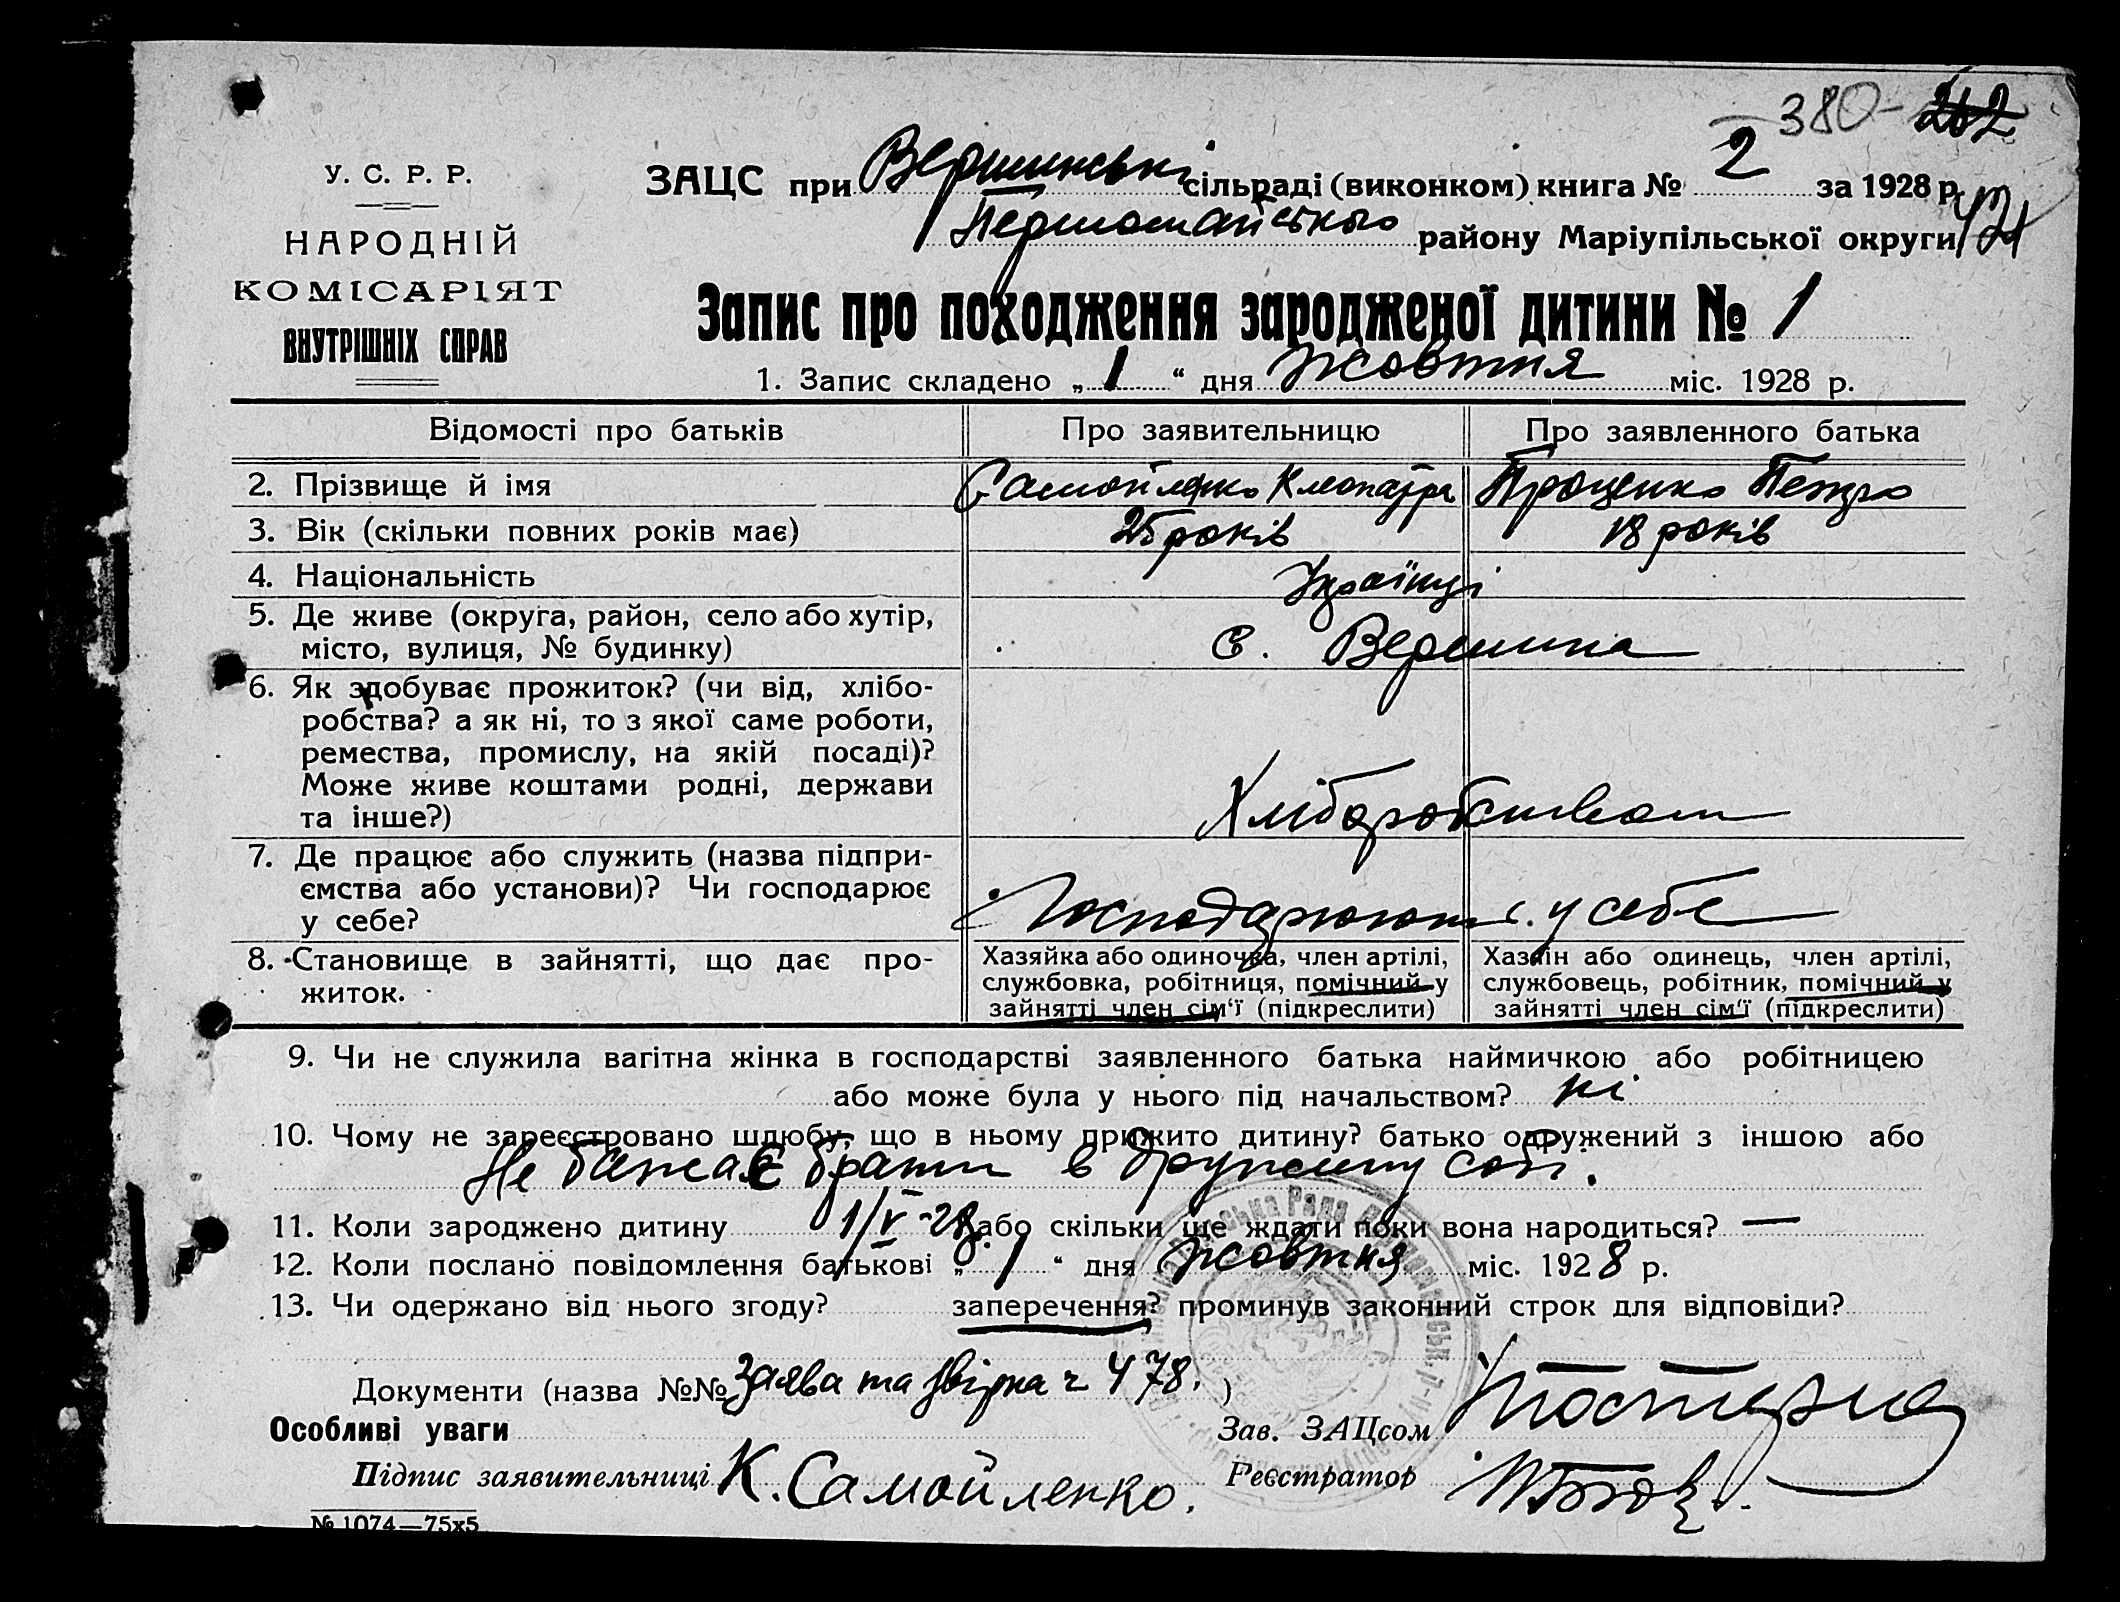 380 - 262
У. С. Р. Р.
НАРОДНІЙ
КОМІСАРІЯТ
ВНУТРІШНІХ СПРАВ
ЗАЦС при Вершинські сільраді (виконком) книга № 2 за 1928 р.
Першотравневого району Маріупільської округи
Запис про походження зародженої дитини № 1
1. Запис складено „ 1 “ дня жовтня міс. 1928 р.
Відомості про батьків Про заявительницю Про заявленного батька
2. Прізвище й імя Самойленко Клеопатра Проценко Петро
3. Вік (скільки повних років має) 25 років 18 років
4. Національність Українці
5. Де живе (округа, район, село або хутір,
місто, вулиця, № будинку) с. Вершина
6. Як здобуває прожиток? (чи від, хлібо-
робства? а як ні, то з якої саме роботи,
ремества, промислу, на якій посаді)?
Може живе коштами родні, держави
та інше?) Хліборобством
7. Де працює або служить (назва підпри-
ємства або установи)? Чи господарює
у себе? Господарюють у себе
8. Становище в зайнятті, що дає про-
житок.
Хазяйка або одиночка, член артілі,
службовка, робітниця, помічний у
зайнятті член сім'ї (підкреслити)
Хазяїн або одинець, член артілі,
службовець, робітник, помічний у
зайнятті член сім'ї (підкреслити)
9. Чи не служила вагітна жінка в господарстві заявленного батька наймичкою або робітницею
або може була у нього під начальством? ні
10. Чому не зареєстровано шлюбу, що в ньому прижито дитину? батько одружений з іншою або
Не бажає брати в дружину собі.
11. Коли зароджено дитину 1/V-28 або скільки ще ждати поки вона народиться? —
12. Коли послано повідомлення батькові „ 1 “ дня жовтня міс. 1928 р.
13. Чи одержано від нього згоду? заперечення? проминув законний строк для відповіди?
Документи (назва №№ Заява та звірка ч 478. )
Особливі уваги Зав. ЗАЦсом
Підпис заявительниці К. Самойленко. Реєстратор
№ 1074—75х5